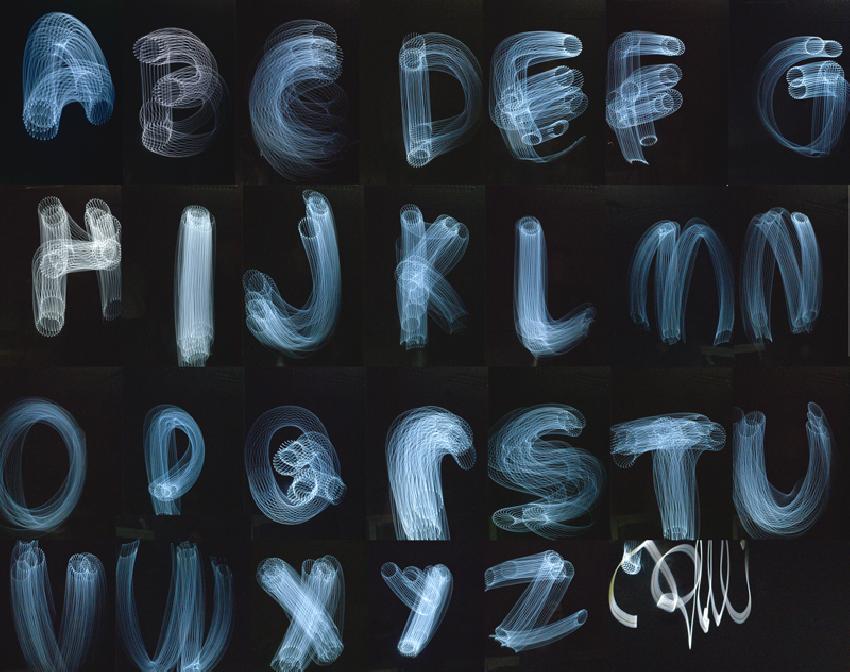 A B C D E F G
H I J K L M N
O P Q r S T U
V W X Y Z